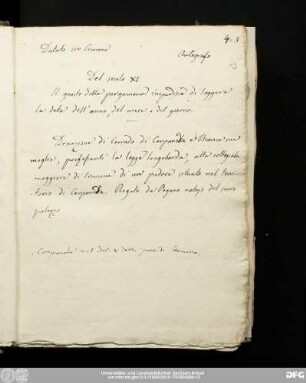 4.8
Datata in Cremona
Autografo
Del secolo XI
Il guasto della pergamena impedisce di leggere
la data dell'anno, del mese e del giorno.
Donazione di Corrado di Carpaneda e Bianca sua
moglie, professanti la legge longobarda, alla cattedrale
maggiore di Cremona di un podere situato nel terri-
torio di Carpaneda. Rogata da Pagano notajo del sacro
palazzo
Carpaneda nel dist. e della prov. di Cremona
Universitäts- und Landesbibliothek Sachsen-Anhalt
DFG